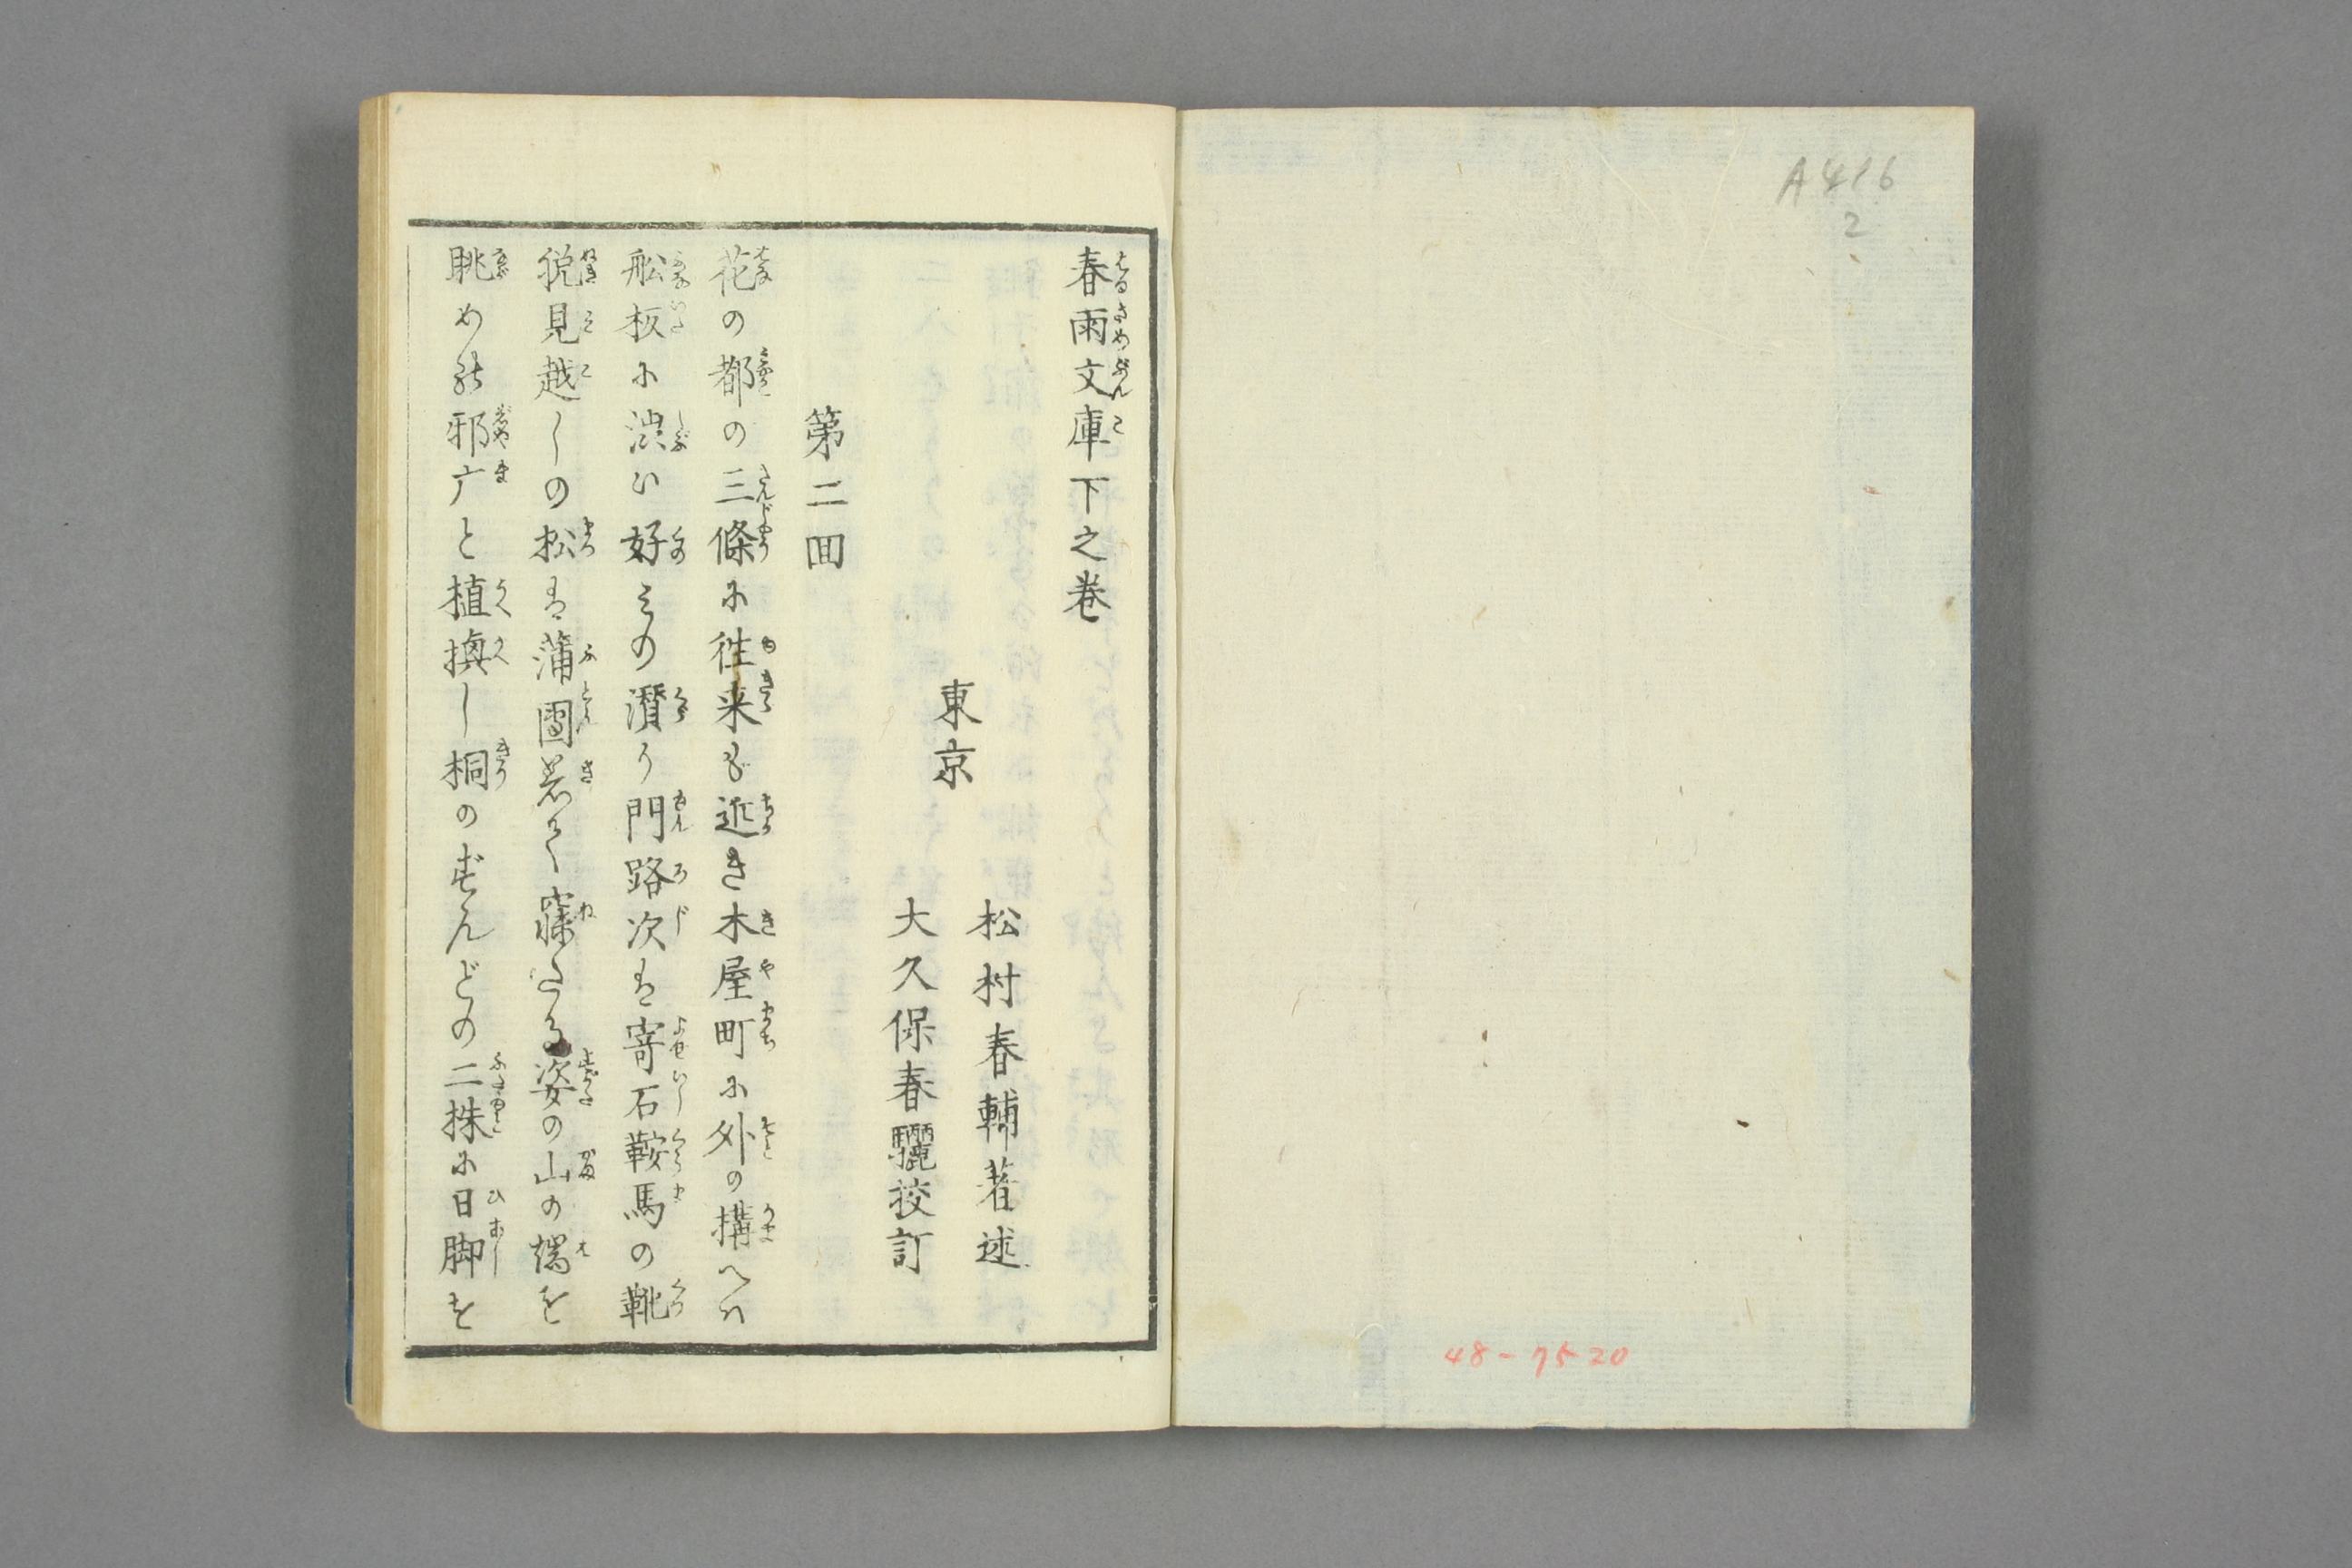 A416
2
48-7520
春雨文庫下之巻
東京
松村春輔著述
大久保春驪挍訂
第二回
花の都の三條に徃来も近き木屋町に外の構へハ
舩板に渋い好みの潜り門路次は寄石鞍馬の靴
脱見越しの松は蒲團着て寐たる姿の山の端を
眺めの邪广と植換し桐のずんどの二株に日脚を